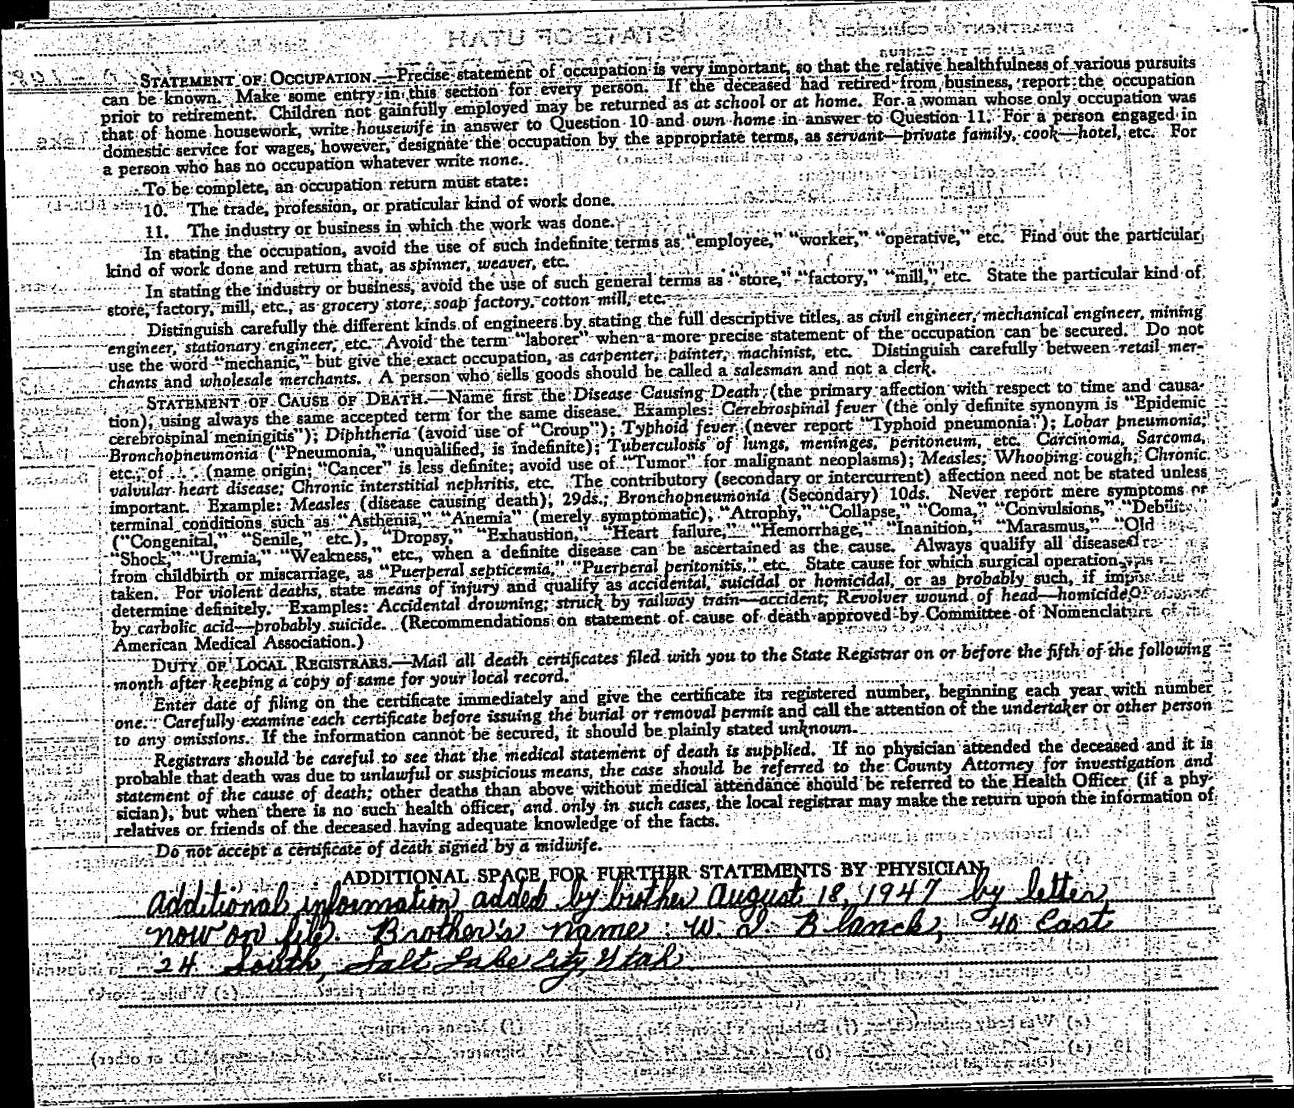 STATE OF UTAH
STATEMENT OF OCCUPATION.—Precise statement of occupation is very important, so that the relative healthfulness of various pursuits
can be known. Make some entry in this section for every person. If the deceased had retired from business, report the occupation
prior to retirement. Children not gainfully employed may be returned as at school or at home. For a woman whose only occupation was
that of home housework, write housewife in answer to Question 10 and own home in answer to Question 11. For a person engaged in
domestic service for wages, however, designate the occupation by the appropriate terms, as servant—private family, cook—hotel, etc. For
a person who has no occupation whatever write none.
To be complete, an occupation return must state:
10. The trade, profession, or praticular kind of work done.
11. The industry or business in which the work was done.
In stating the occupation, avoid the use of such indefinite terms as "employee," "worker," "operative," etc. Find out the particular
kind of work done and return that, as spinner, weaver, etc.
In stating the industry or business, avoid the use of such general terms as "store," "factory," "mill," etc. State the particular kind of
store, factory, mill, etc., as grocery store, soap factory, cotton mill, etc.
Distinguish carefully the different kinds of engineers by stating the full descriptive titles, as civil engineer, mechanical engineer, mining
engineer, stationary engineer, etc. Avoid the term "laborer" when a more precise statement of the occupation can be secured. Do not
use the word "mechanic," but give the exact occupation, as carpenter, painter, machinist, etc. Distinguish carefully between retail mer-
chants and wholesale merchants. A person who sells goods should be called a salesman and not a clerk.
STATEMENT OF CAUSE OF DEATH.—Name first the Disease Causing Death (the primary affection with respect to time and causa-
tion), using always the same accepted term for the same disease. Examples: Cerebrospinal fever (the only definite synonym is "Epidemic
cerebrospinal meningitis"); Diphtheria (avoid use of "Croup"); Typhoid fever (never report "Typhoid pneumonia"); Lobar pneumonia;
Bronchopneumonia ("Pneumonia," unqualified, is indefinite); Tuberculosis of lungs, meninges, peritoneum, etc. Carcinoma, Sarcoma,
etc., of ... (name origin; "Cancer" is less definite; avoid use of "Tumor" for malignant neoplasms); Measles; Whooping cough; Chronic
valvular heart disease; Chronic interstitial nephritis, etc. The contributory (secondary or intercurrent) affection need not be stated unless
important. Example: Measles (disease causing death), 29ds.; Bronchopneumonia (Secondary) 10ds. Never report mere symptoms or
terminal conditions such as "Asthenia," "Anemia" (merely symptomatic), "Atrophy," "Collapse," "Coma," "Convulsions," "Debility"
("Congenital," "Senile," etc.), "Dropsy," "Exhaustion," "Heart failure," "Hemorrhage," "Inanition," "Marasmus," "Old
"Shock," "Uremia," "Weakness," etc., when a definite disease can be ascertained as the cause. Always qualify all diseases
from childbirth or miscarriage, as "Puerperal septicemia," "Puerperal peritonitis," etc. State cause for which surgical operation was
taken. For violent deaths, state means of injury and qualify as accidental, suicidal or homicidal, or as probably such, if impossible
determine definitely. Examples: Accidental drowning; struck by railway train—accident; Revolver wound of head—homicide; Poisoned
by carbolic acid—probably suicide. (Recommendations on statement of cause of death approved by Committee of Nomenclature of the
American Medical Association.)
DUTY OF LOCAL REGISTRARS.—Mail all death certificates filed with you to the State Registrar on or before the fifth of the following
month after keeping a copy of same for your local record.
Enter date of filing on the certificate immediately and give the certificate its registered number, beginning each year with number
one. Carefully examine each certificate before issuing the burial or removal permit and call the attention of the undertaker or other person
to any omissions. If the information cannot be secured, it should be plainly stated unknown.
Registrars should be careful to see that the medical statement of death is supplied. If no physician attended the deceased and it is
probable that death was due to unlawful or suspicious means, the case should be referred to the County Attorney for investigation and
statement of the cause of death; other deaths than above without medical attendance should be referred to the Health Officer (if a phy-
sician), but when there is no such health officer, and only in such cases, the local registrar may make the return upon the information of
relatives or friends of the deceased having adequate knowledge of the facts.
Do not accept a certificate of death signed by a midwife.
ADDITIONAL SPACE FOR FURTHER STATEMENTS BY PHYSICIAN
Additional information added by brother August 18, 1947 by letter
now on file. Brother's name: W. I. Blanck, 40 East
24 South, Salt Lake City, Utah